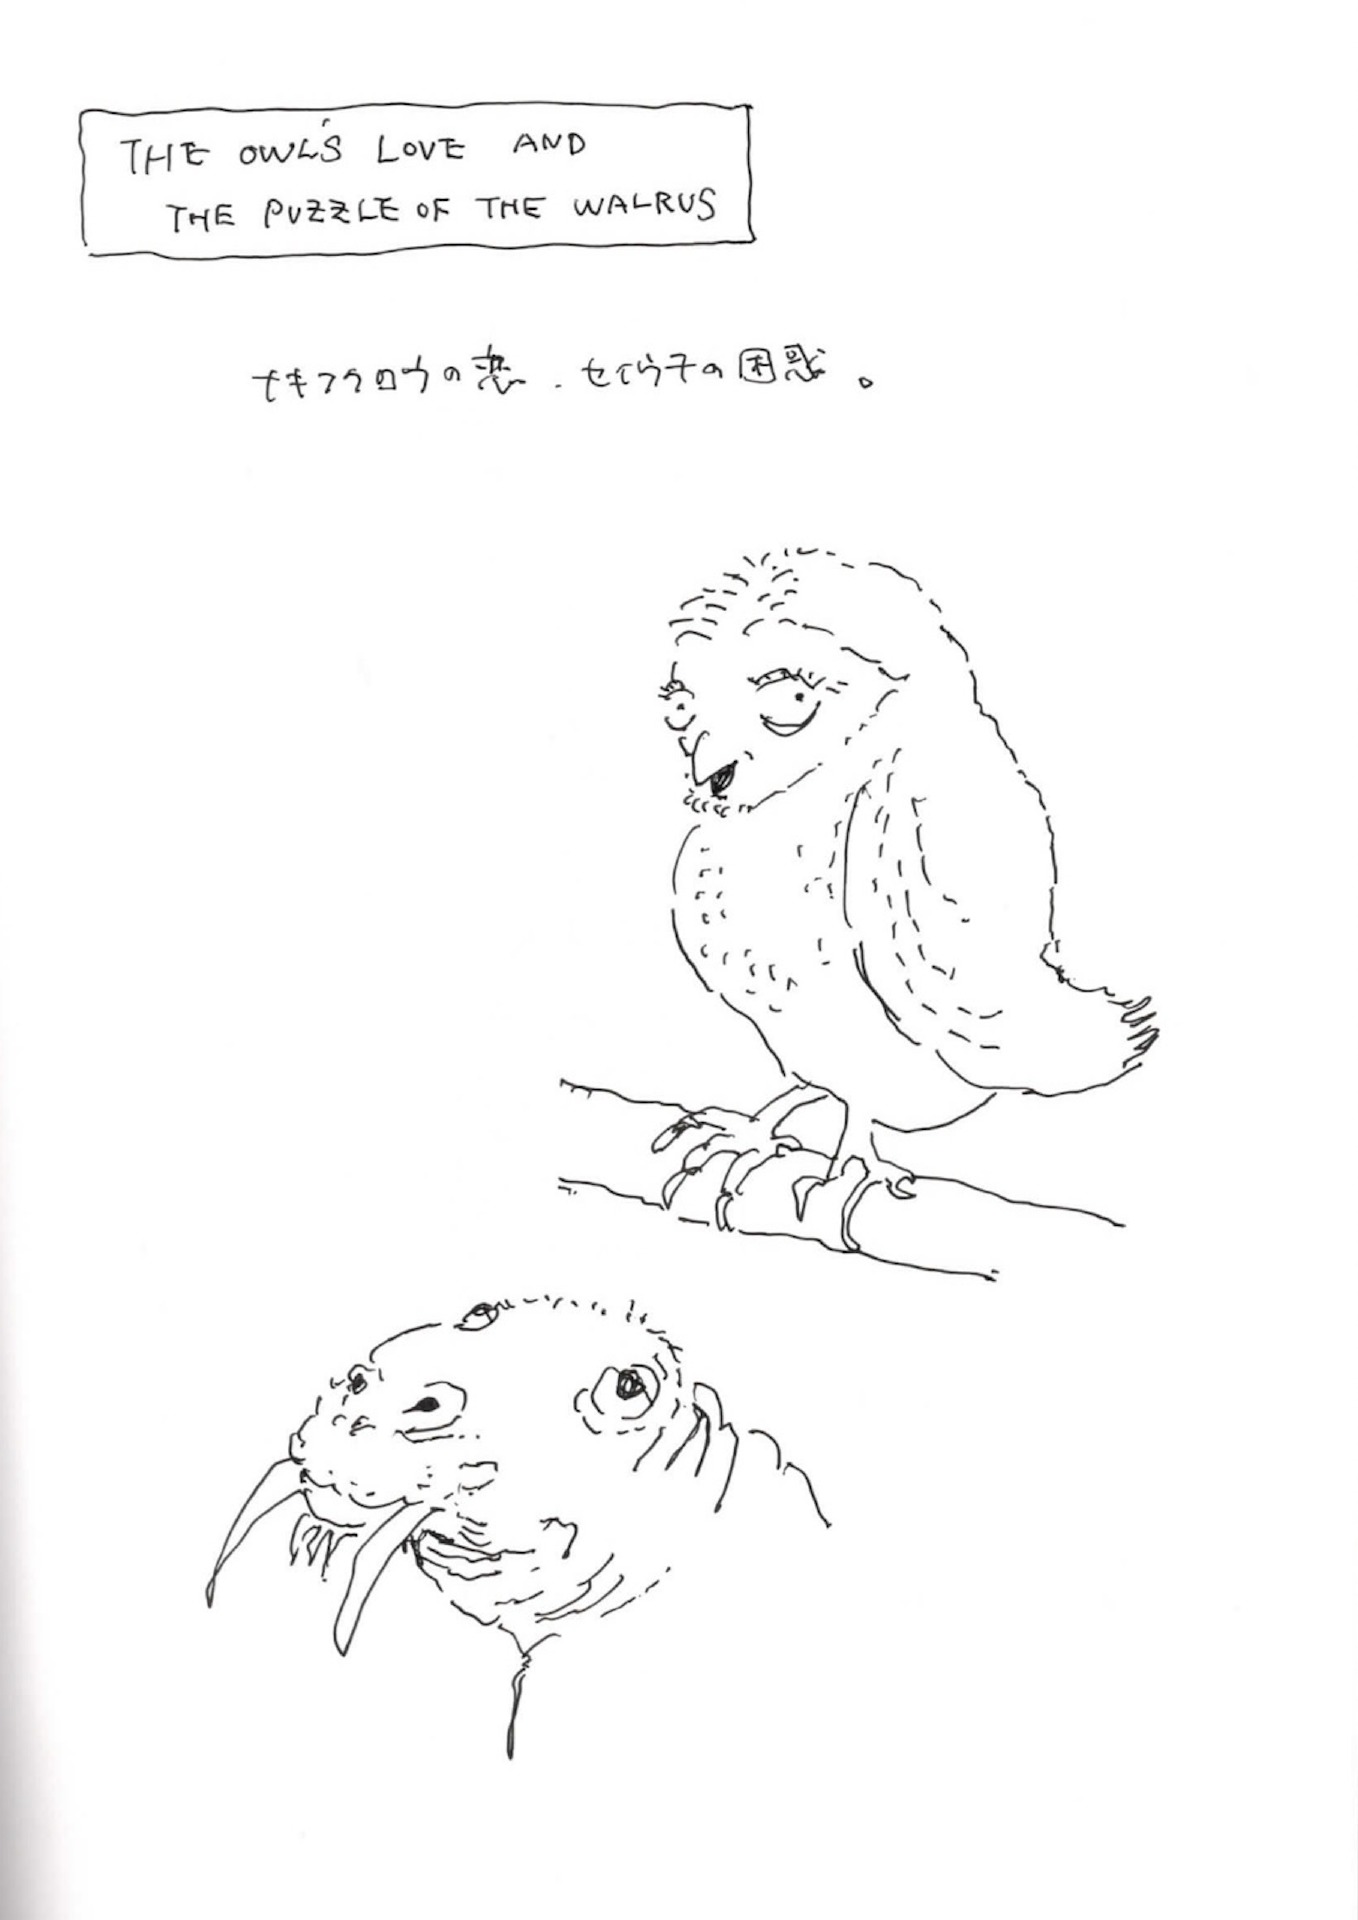 THE OWL'S LOVE AND
THE PUZZLE OF THE WALRUS
オキフクロウの恋．セイウチの困惑。